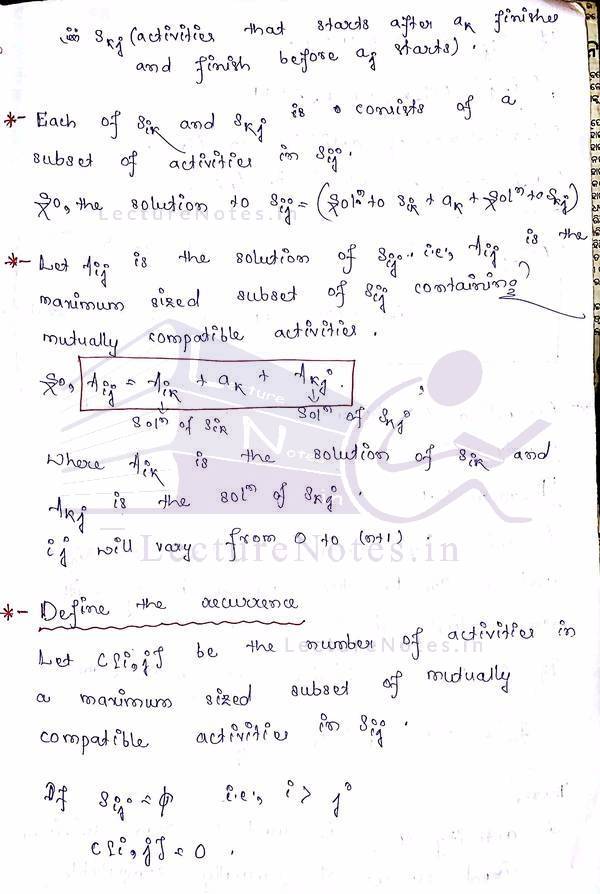 iii) Skj (activities that starts after ak finishes
and finish before aj starts).
*- Each of Sik and Skj is consists of a
subset of activities in Sij.
So, the solution to Sij = (Solⁿ to Sik + ak + Solⁿ to Skj)
LectureNotes.in
*- Let Aij is the solution of Sij. i.e., Aij is the
maximum sized subset of Sij containing
mutually compatible activities.
So, Aij = Aik + ak + Akj.
Solⁿ of Sik Solⁿ of Skj
where Aik is the solution of Sik and
Akj is the solⁿ of Skj.
ij will vary from 0 to (n+1).
LectureNotes.in
*- Define the recurrence
LectureNotes.in
Let c[i,j] be the number of activities in
a maximum sized subset of mutually
compatible activities in Sij.
If Sij = φ i.e., i > j
c[i,j] = 0.